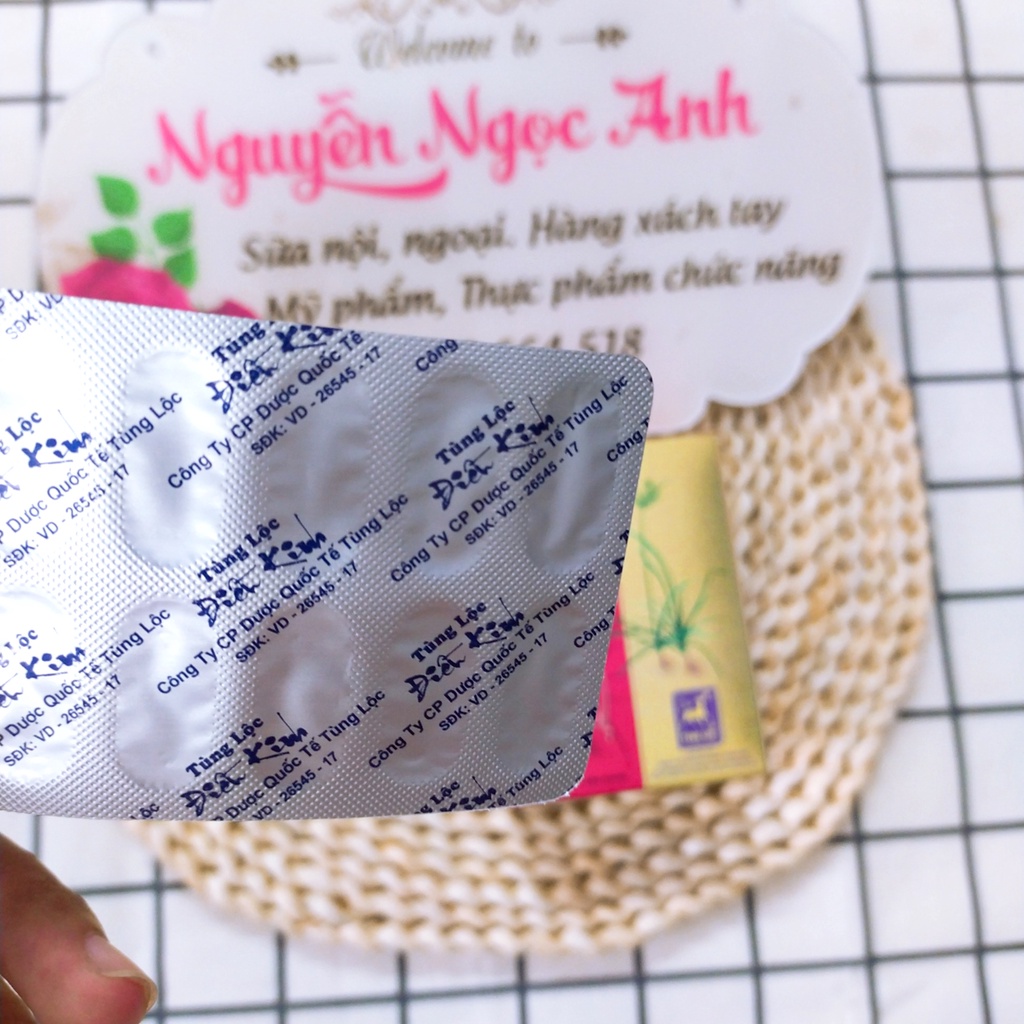 Welcome to
Nguyễn Ngọc Anh
Sữa nội, ngoại. Hàng xách tay
Mỹ phẩm, Thực phẩm chức năng
518
SĐK: VD
Tùng
Điều Kim
Công Ty CP Dược Quốc Tế
SĐK: VD - 26545 - 17
Công
Tùng Lộc
Điều Kim
Công Ty CP Dược Quốc Tế Tùng Lộc
SĐK: VD - 26545 - 17
Tùng Lộc
Điều Kim
Công Ty CP Dược Quốc Tế Tùng Lộc
SĐK: VD - 26545 - 17
Lộc
Kim
Dược Quốc Tế Tùng Lộc
SĐK: VD - 26545 - 17
Tùng Lộc
Điều Kim
Công Ty CP Dược Quốc Tế Tùng Lộc
SĐK: VD - 26545 - 17
Tùng Lộc
Điều Kim
Công Ty CP Dược Quốc Tế Tùng Lộc
SĐK: VD - 26545 - 17
Lộc
Kim
Dược Quốc Tế Tùng Lộc
SĐK: VD - 26545 - 17
Tùng Lộc
Kim